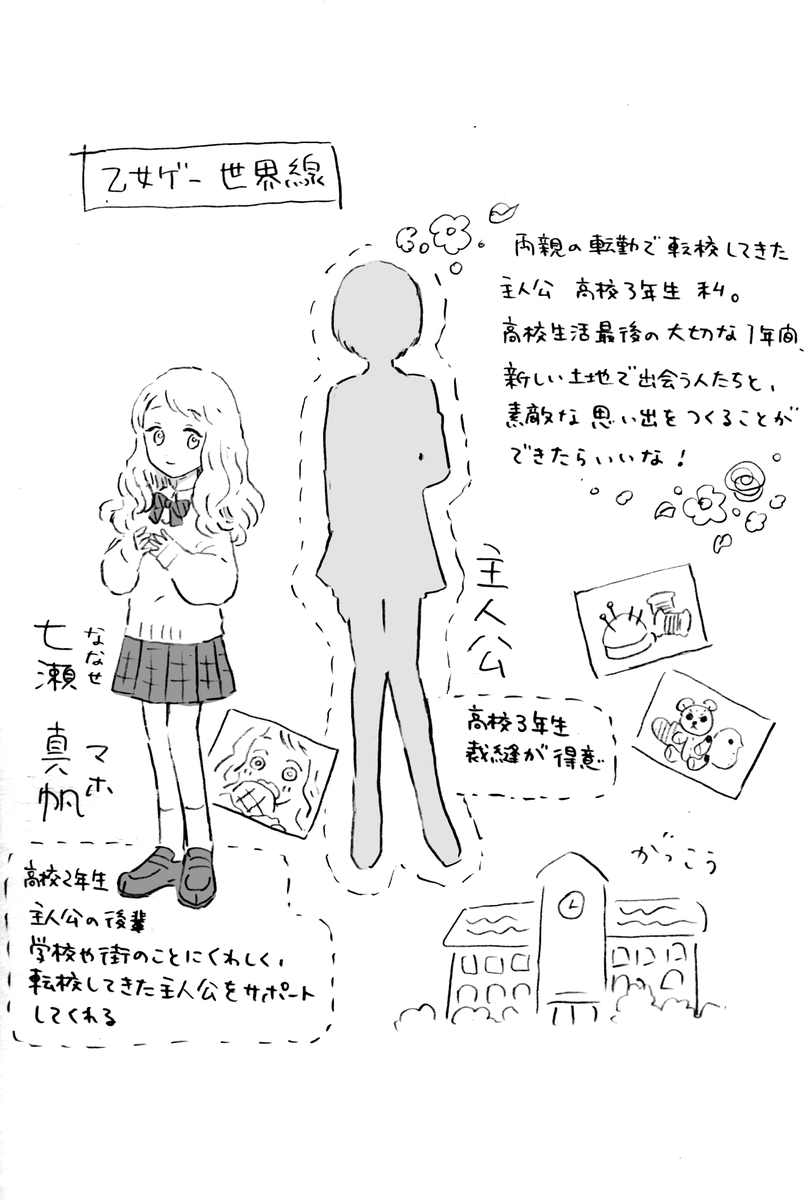 乙女ゲー世界線
両親の転勤で転校してきた
主人公 高校3年生 私。
高校生活最後の大切な1年間、
新しい土地で出会う人たちと、
素敵な思い出をつくることが
できたらいいな！
主人公
高校3年生
裁縫が得意
七瀬 真帆
ななせ マホ
高校2年生
主人公の後輩
学校や街のことにくわしく、
転校してきた主人公をサポート
してくれる
がっこう